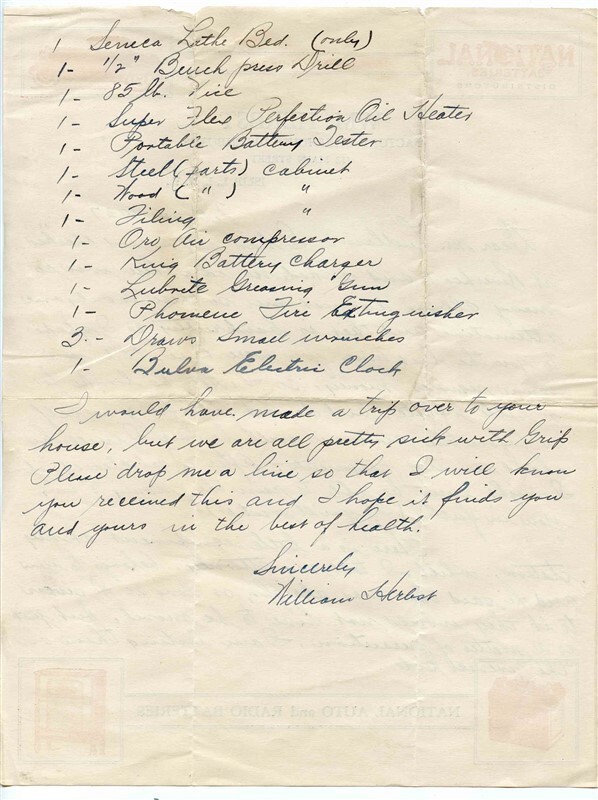 1 Seneca Lathe Bed. (only)
1- 1/2" Bench press Drill
1- 85 lb. Vice
1- Super Flex Perfection Oil Heater
1- Portable Battery Tester
1- Steel (parts) cabinet
1- Wood ( " ) "
1- Filing "
1- Oro Air compressor
1- King Battery Charger
1- Lubrite Greasing Gun
1- Phomene Fire Extinguisher
3.- Draws Small wrenches
1- Bulva Electric Clock
I would have made a trip over to your
house, but we are all pretty sick with Grip
Please drop me a line so that I will know
you received this and I hope it finds you
and yours in the best of health.
Sincerely
William Herbst
NATIONAL
BATTERIES
DISTRIBUTORS
NATIONAL AUTO and RADIO BATTERIES